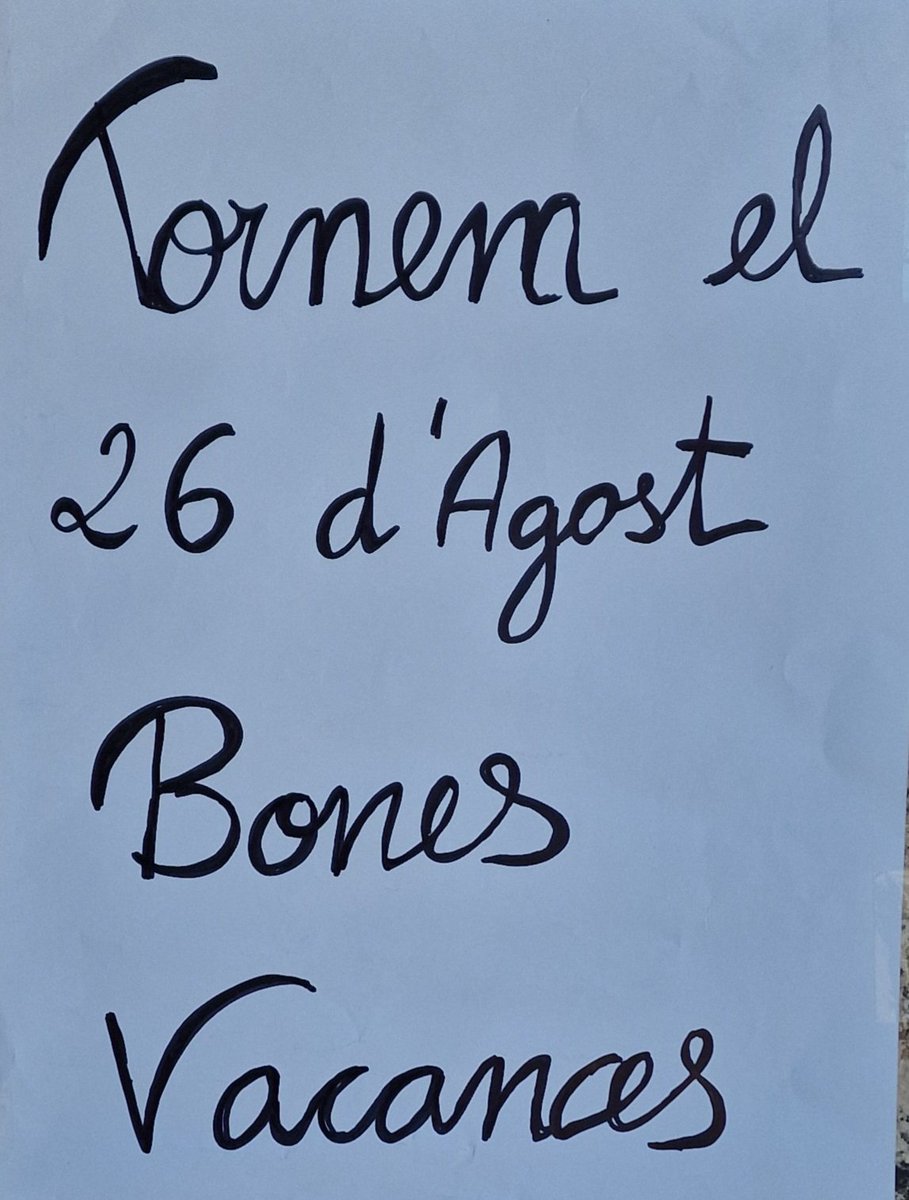 Tornem el
26 d'Agost
Bones
Vacances